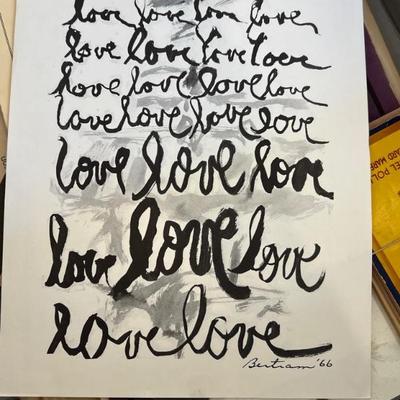 love love love love
love love love love
love love love love
love love love love
love love love
love love love
love love
Bertram '66
EL POLI
ARD MARB